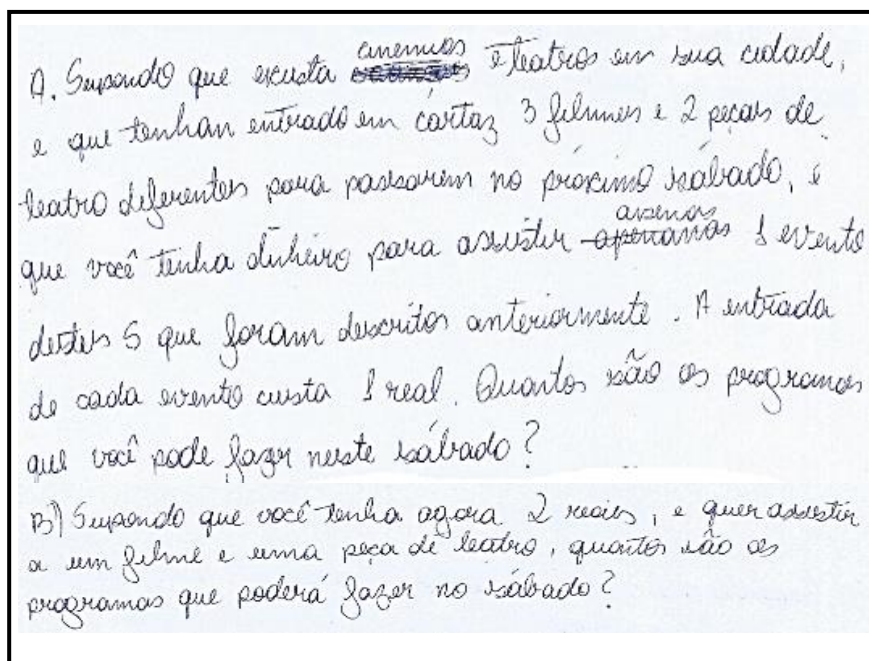 A. Supondo que exista cinemas e teatros em sua cidade,
e que tenham entrado em cartaz 3 filmes e 2 peças de
teatro diferentes para passarem no próximo sábado, e
que você tenha dinheiro para assistir apenas 1 evento
destes 5 que foram descritos anteriormente. A entrada
de cada evento custa 1 real. Quantos são os programas
que você pode fazer neste sábado?
B) Supondo que você tenha agora 2 reais, e quer assistir
a um filme e uma peça de teatro, quantos são os
programas que poderá fazer no sábado?